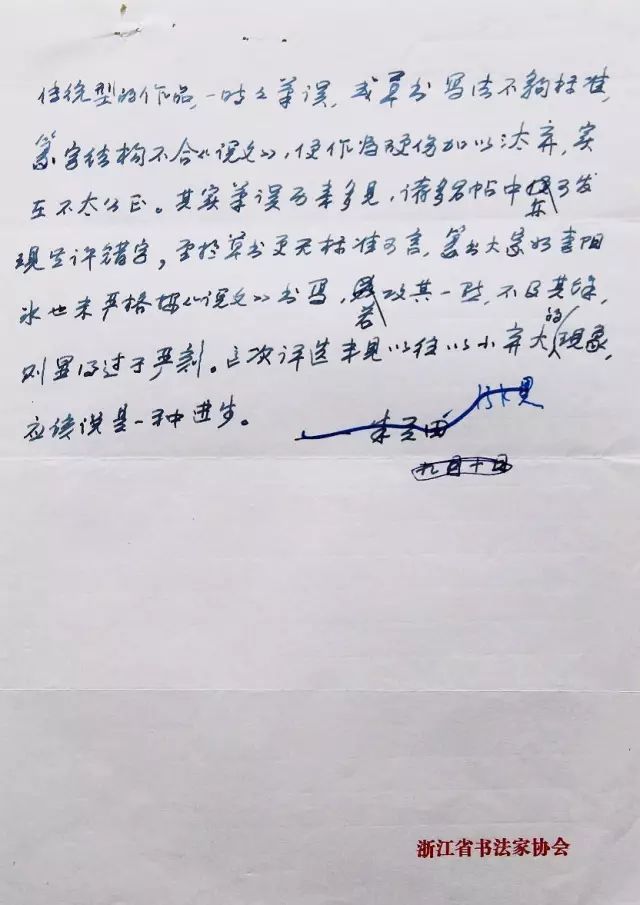 传统型的作品,一时之笔误,或草书写法不够标准,
篆字结构不合《说文》,便作为硬伤加以汰弃,实
在不太公正。其实笔误不幸多见,诸多名帖中亦可发
现些许错字,至於草书更无标准可言,篆书大家如李阳
冰也未严格按《说文》书写,若攻其一点,不及其余,
则显得过于严刻。这次评选未见以往以小弃大的现象,
应该说是一种进步。
朱关田
九月十日
浙江省书法家协会